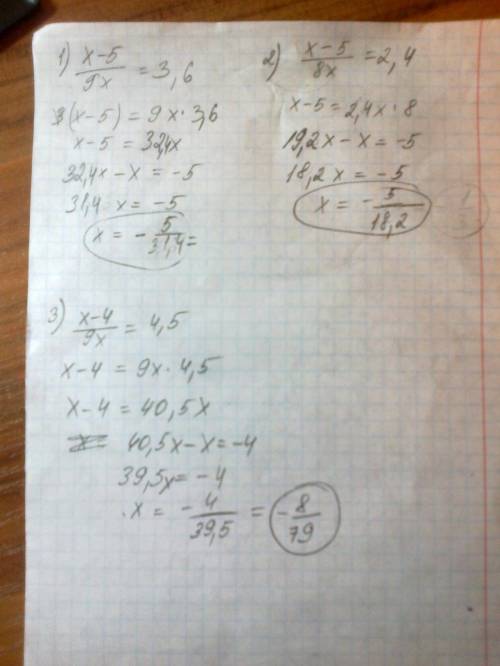 1) x-5/9x = 3,6
(x-5) = 9x·3,6
x-5 = 32,4x
32,4x - x = -5
31,4 x = -5
x = - 5/31,4 =
2) x-5/8x = 2,4
x-5 = 2,4x·8
19,2x - x = -5
18,2x = -5
x = - 5/18,2
3) x-4/9x = 4,5
x-4 = 9x·4,5
x-4 = 40,5x
40,5x - x = -4
39,5x = -4
x = - 4/39,5 = - 8/79